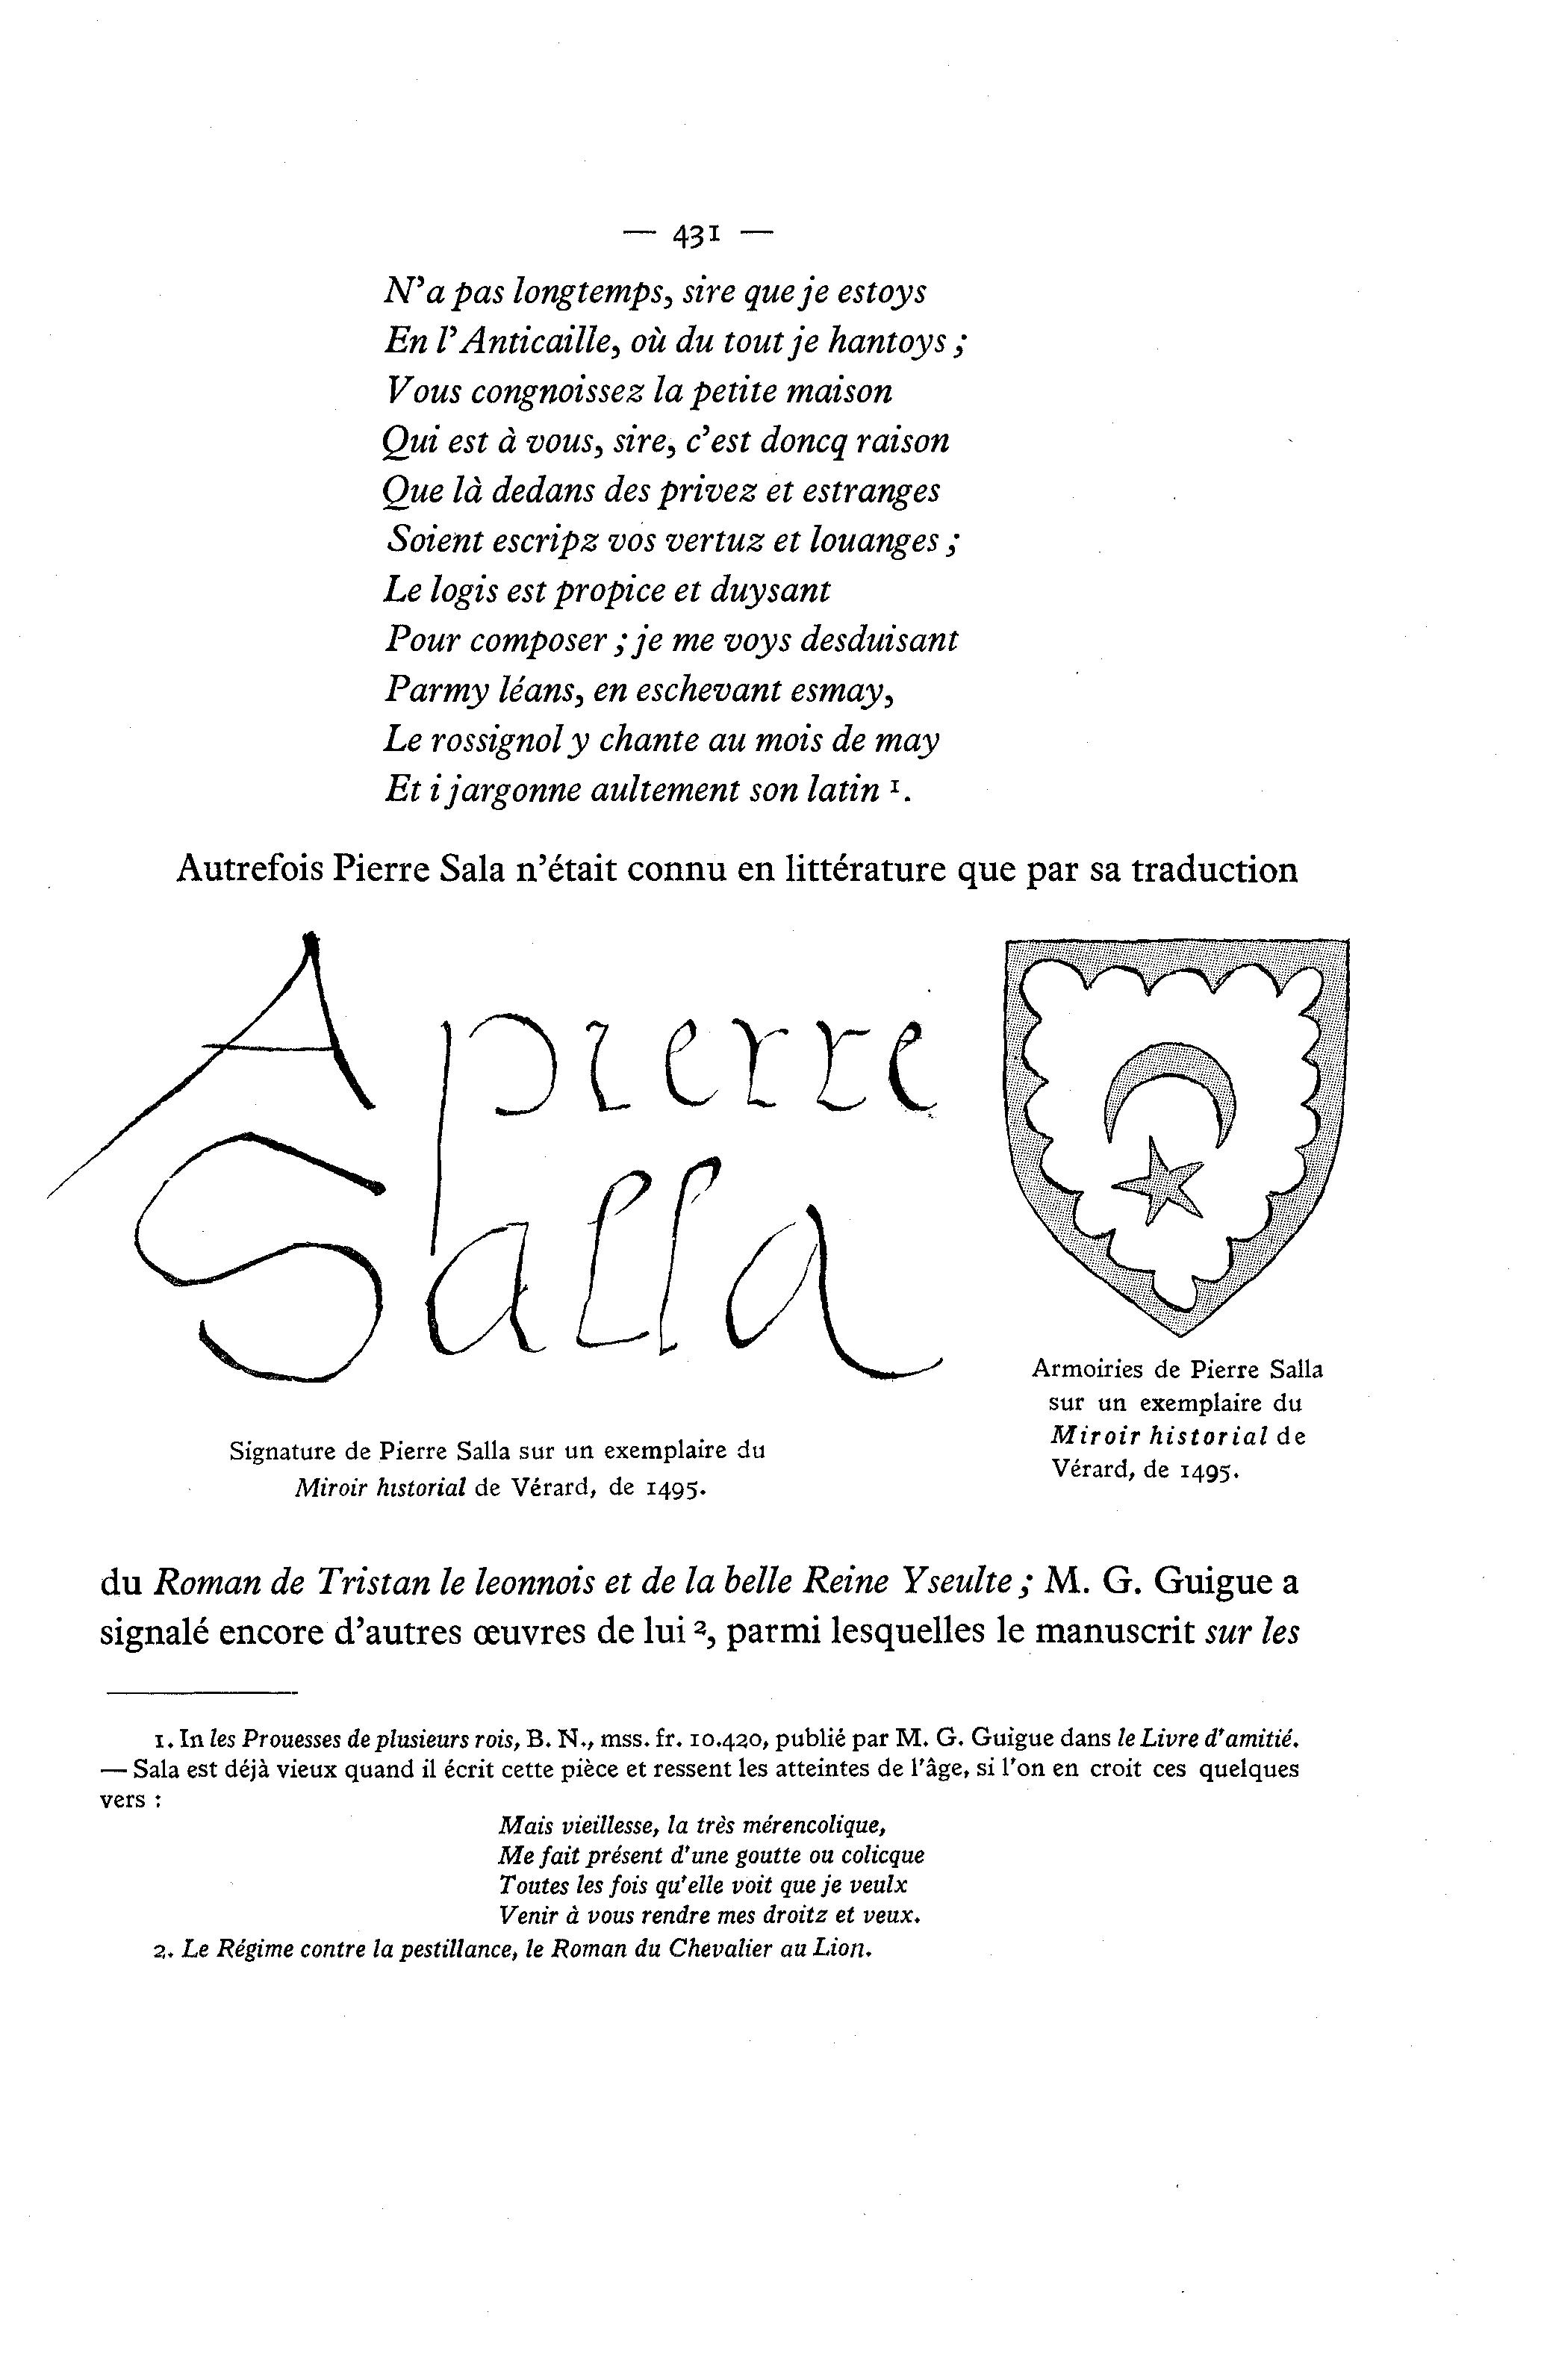 — 431 —
N'a pas longtemps, sire que je estoys
En l'Anticaille, où du tout je hantoys ;
Vous congnoissez la petite maison
Qui est à vous, sire, c'est doncq raison
Que là dedans des privez et estranges
Soient escripz vos vertuz et louanges ;
Le logis est propice et duysant
Pour composer ; je me voys desduisant
Parmy léans, en eschevant esmay,
Le rossignol y chante au mois de may
Et i jargonne aultement son latin 1.
Autrefois Pierre Sala n'était connu en littérature que par sa traduction
A pierre
Salla
Signature de Pierre Salla sur un exemplaire du
Miroir historial de Vérard, de 1495.
Armoiries de Pierre Salla
sur un exemplaire du
Miroir historial de
Vérard, de 1495.
du Roman de Tristan le leonnois et de la belle Reine Yseulte ; M. G. Guigue a
signalé encore d'autres œuvres de lui 2, parmi lesquelles le manuscrit sur les
1. In les Prouesses de plusieurs rois, B. N., mss. fr. 10.420, publié par M. G. Guigue dans le Livre d'amitié.
— Sala est déjà vieux quand il écrit cette pièce et ressent les atteintes de l'âge, si l'on en croit ces quelques
vers :
Mais vieillesse, la très mérencolique,
Me fait présent d'une goutte ou colicque
Toutes les fois qu'elle voit que je veulx
Venir à vous rendre mes droitz et veux.
2. Le Régime contre la pestillance, le Roman du Chevalier au Lion.